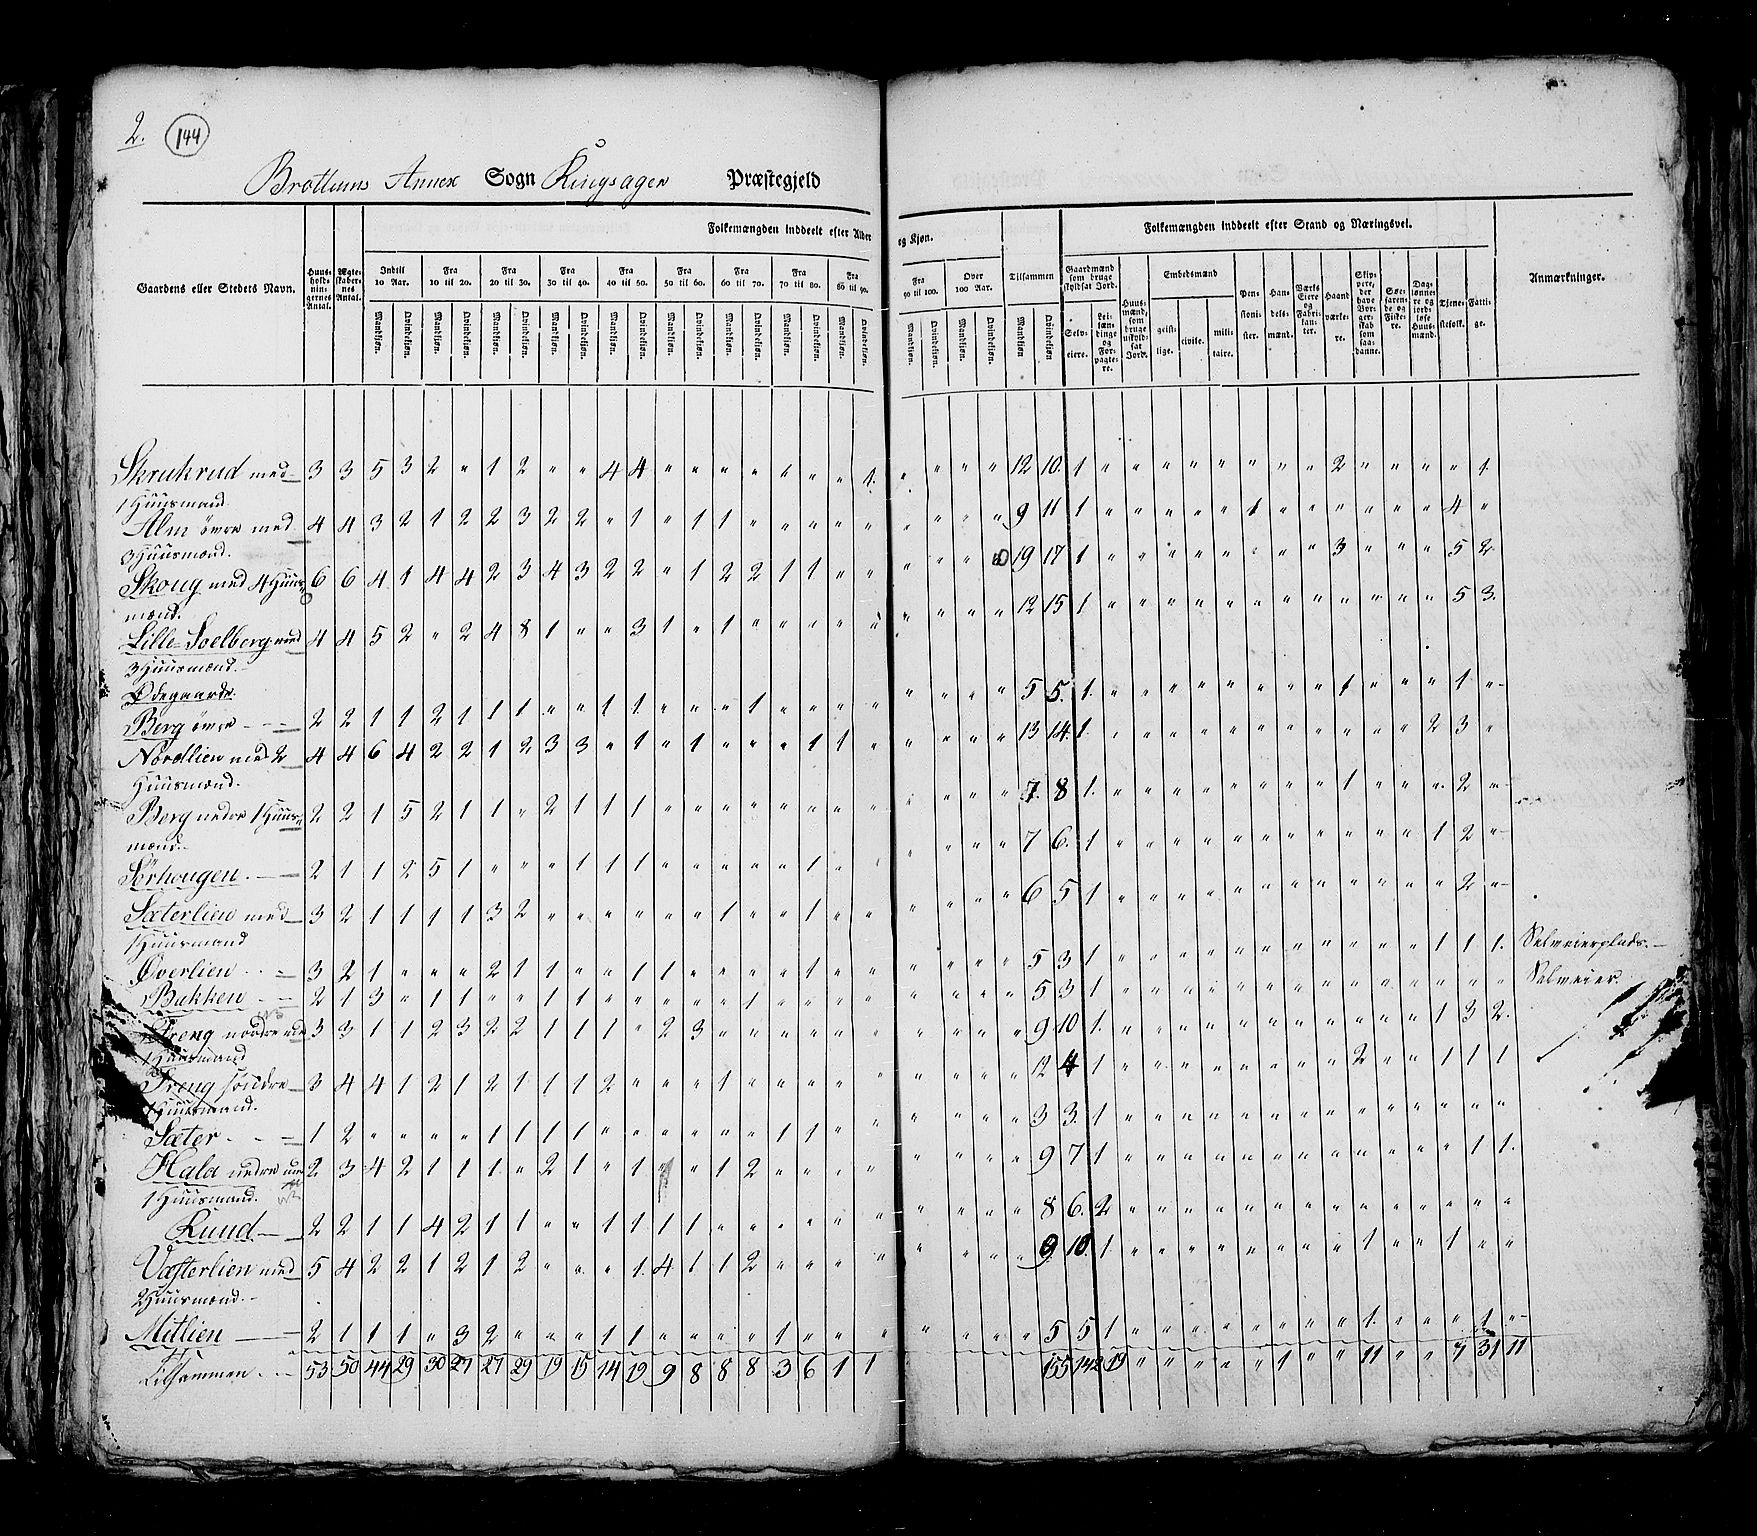 2. 144
Brottums Annex Sogn Ringsager Præstegjeld
Folkemængden inddeelt efter Alder og Kjøn.
Folkemængden inddeelt efter Stand og Næringsvei.
Gaardens eller Stedets Navn.
Huus-holdnin-gernes Antal.
Ægte-skaber-nes Antal.
Indtil 10 Aar.
Fra 10 til 20.
Fra 20 til 30.
Fra 30 til 40.
Fra 40 til 50.
Fra 50 til 60.
Fra 60 til 70.
Fra 70 til 80.
Fra 80 til 90.
Fra 90 til 100.
Over 100 Aar.
Tilsammen
Mandkjøn. Qvindekjøn.
Gaardmænd som bruge skyldsat Jord.
Selv-eiere.
Lei-læn-dinge og For-pagte-re.
Huus-mænd, som bruge uskyld-sat Jord.
Embedsmænd
geist-lige. civile. mili-taire.
Pen-sioni-ster.
Han-dels-mænd.
Værks Eiere og Fabri-kan-ter.
Haand værke-re.
Skip-pere, der have Bor-ger-skab som saa-danne.
Søe-faren-de og Fiske-re.
Dag-lønne-re og jord-løse Huus-mænd.
Tjene-stefolk.
Fatti-ge.
Anmærkninger.
Skrukrud med 3 3 5 3 2 " 1 2 " " 4 4 " " " " " " " 1. " " " " 12 10. 1 " " " " " " " " 2 " " " " 1.
1 Huusmand.
Alm övre med 4 4 3 2 1 2 2 3 2 2 " 1 " 1 1 " " " " " " " " " 9 11 1 " " " " " 1 " " " " " " 4 "
3 Huusmænd.
Skoug med 4 Huus- 6 6 4 1 4 4 2 3 4 3 2 2 " 1 2 2 1 1 " " " " " 19 17 1 " " " " " " " " 3 " " " 5 2
mænd.
Lille Soelberg med 4 4 5 2 " 2 4 8 1 " " 3 1 " 1 " " " " " " " " " 12 15 1 " " " " " " " " " " " " 5 3.
3 Huusmænd.
Ødegaarde.
Berg övre 2 2 1 1 2 1 1 1 " " 1 1 " " " 1 " " " " " " " " 5 5. 1. " " " " " " " " 1 " " " 1 "
Nordlien med 2 4 4 6 4 2 2 1 2 3 3 " 1 " 1 " " " 1 1 " " " " " 13 14 1. " " " " " " " " " " " 2 3 "
Huusmænd.
Berg nedre 1 Huus- 2 2 1 5 2 1 1 " 2 1 1 1 " " " " " " " " " " " " 7. 8 1. " " " " " " " " 1 " " " 2 "
mænd.
Sörhougen. 2 1 1 2 5 1 " " " 1 1 1 " " " " " 1 " " " " " " 7 6. 1 " " " " " " " " " " " 1 2 "
Sæterlien med 3 2 1 1 1 1 3 2 " " " " " " 1 " " 1 " " " " " " 6 5 1 " " " " " " " " " " " " 2 "
1 Huusmand
Överlien 3 2 1 " " " 2 1 1 " " 1 1 " " " " 1 " " " " " " 5 3 1 " " " " " " " " " " " 1 1 1. Selveierplads.
Bakken 2 1 3 " 1 1 " " 1 1 " " " " " 1 " " " " " " " " 5 3 1 " " " " " " " " " " " " " " Selveier.
Treng nordre med 3 3 1 1 2 3 2 2 1 1 1 " 2 3 " " " " " " " " " " 9 10 1. " " " " " " " " " " " 1 3 2.
1 Huusmand
Treng söndre 3 4 4 1 2 1 2 1 1 1 2 " " " " 1 " " " " " " " " 12 4 1 " " " " " " " " 2 " " 1 1 1
1 Huusmand.
Sæter 1 2 " " " " 1 1 1 1 " " " " " " 1 1 " " " " " " 3 3. 1 " " " " " " " " " " " " " "
Hala nedre med 2 3 4 2 1 1 1. " 2 1 " 1 " " 1 2 " " " " " " " " 9 7 1 " " " " " " " " " " " " 1 1.
1 Huusmand.
Rund 2 2 1 1 4 2 1 1 " " 1 1 1 1 " " " " " " " " " " 8 6. 2 " " " " " " " " " " " " " "
Væsterlien med 5 4 2 2 1 2 1 2 " " " 1. 4 1 1 2 " " " " " " " " 9 10. 1 " " " " " " " " 1 " " 1 " "
2 Huusmænd.
Mitlien 2 1 1 1 " 3 2 " " " 1 1 " " " " 1 " " " " " " " 5 5 1 " " " " " " " " 1. " " " 1 "
Tilsammen 53 50 44 29 30 27 27 29 19 15 14 19 9 8 8 8 3 6 1 1 155 142 19 " " " " " 1 " " 11 " " 7 31 11